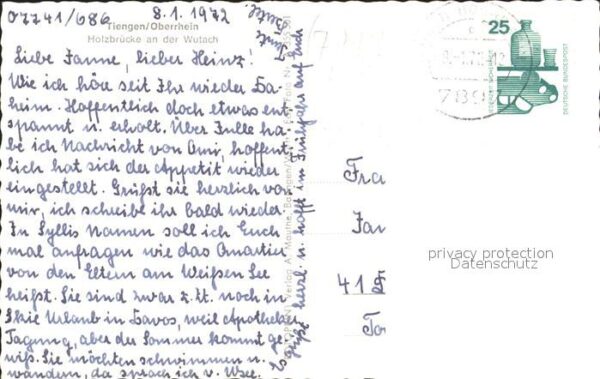 07741/686
8.1.1972
Tiengen/Oberrhein
Holzbrücke an der Wutach
Liebe Fanne, lieber Heinz!
Wie ich höre seit Ihr wieder Da-
heim. Hoffentlich doch etwas ent-
spannt u. erholt. Über Fulle ha-
be ich Nachricht von Omi, hoffent-
lich hat sich der Appetit wieder
eingestellt. Grüßt sie herzlich von
mir, ich schreibe ihr bald wieder.
In Syllis Namen soll ich Euch
mal anfragen wie das Quartier
von den Eltern am Weißen See
heißt. Sie sind zwar z.Zt. noch in
Skie Urlaub in Davos, weil Apotheker
Tagung, aber der Sommer kommt ge-
wiß. Sie möchten schwimmen u.
wandern, da sprach ich v. Wsee.
Es grüßt herzl. u. hofft im Frühjahr auf Euch
25
DEUTSCHE BUNDESPOST
789
Fra
Far
41
To
privacy protection
Datenschutz